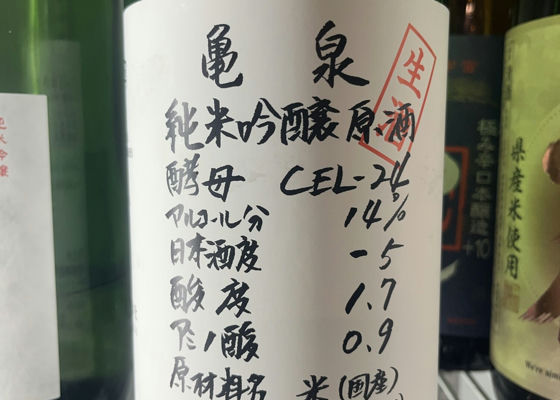 亀泉
生酒
純米吟醸原酒
酵母 CEL-24
アルコール分 14%
日本酒度 -5
酸度 1.7
アミノ酸 0.9
原材料名 米(国産)
極み辛口本醸造
+10
県産米使用
We're aimi